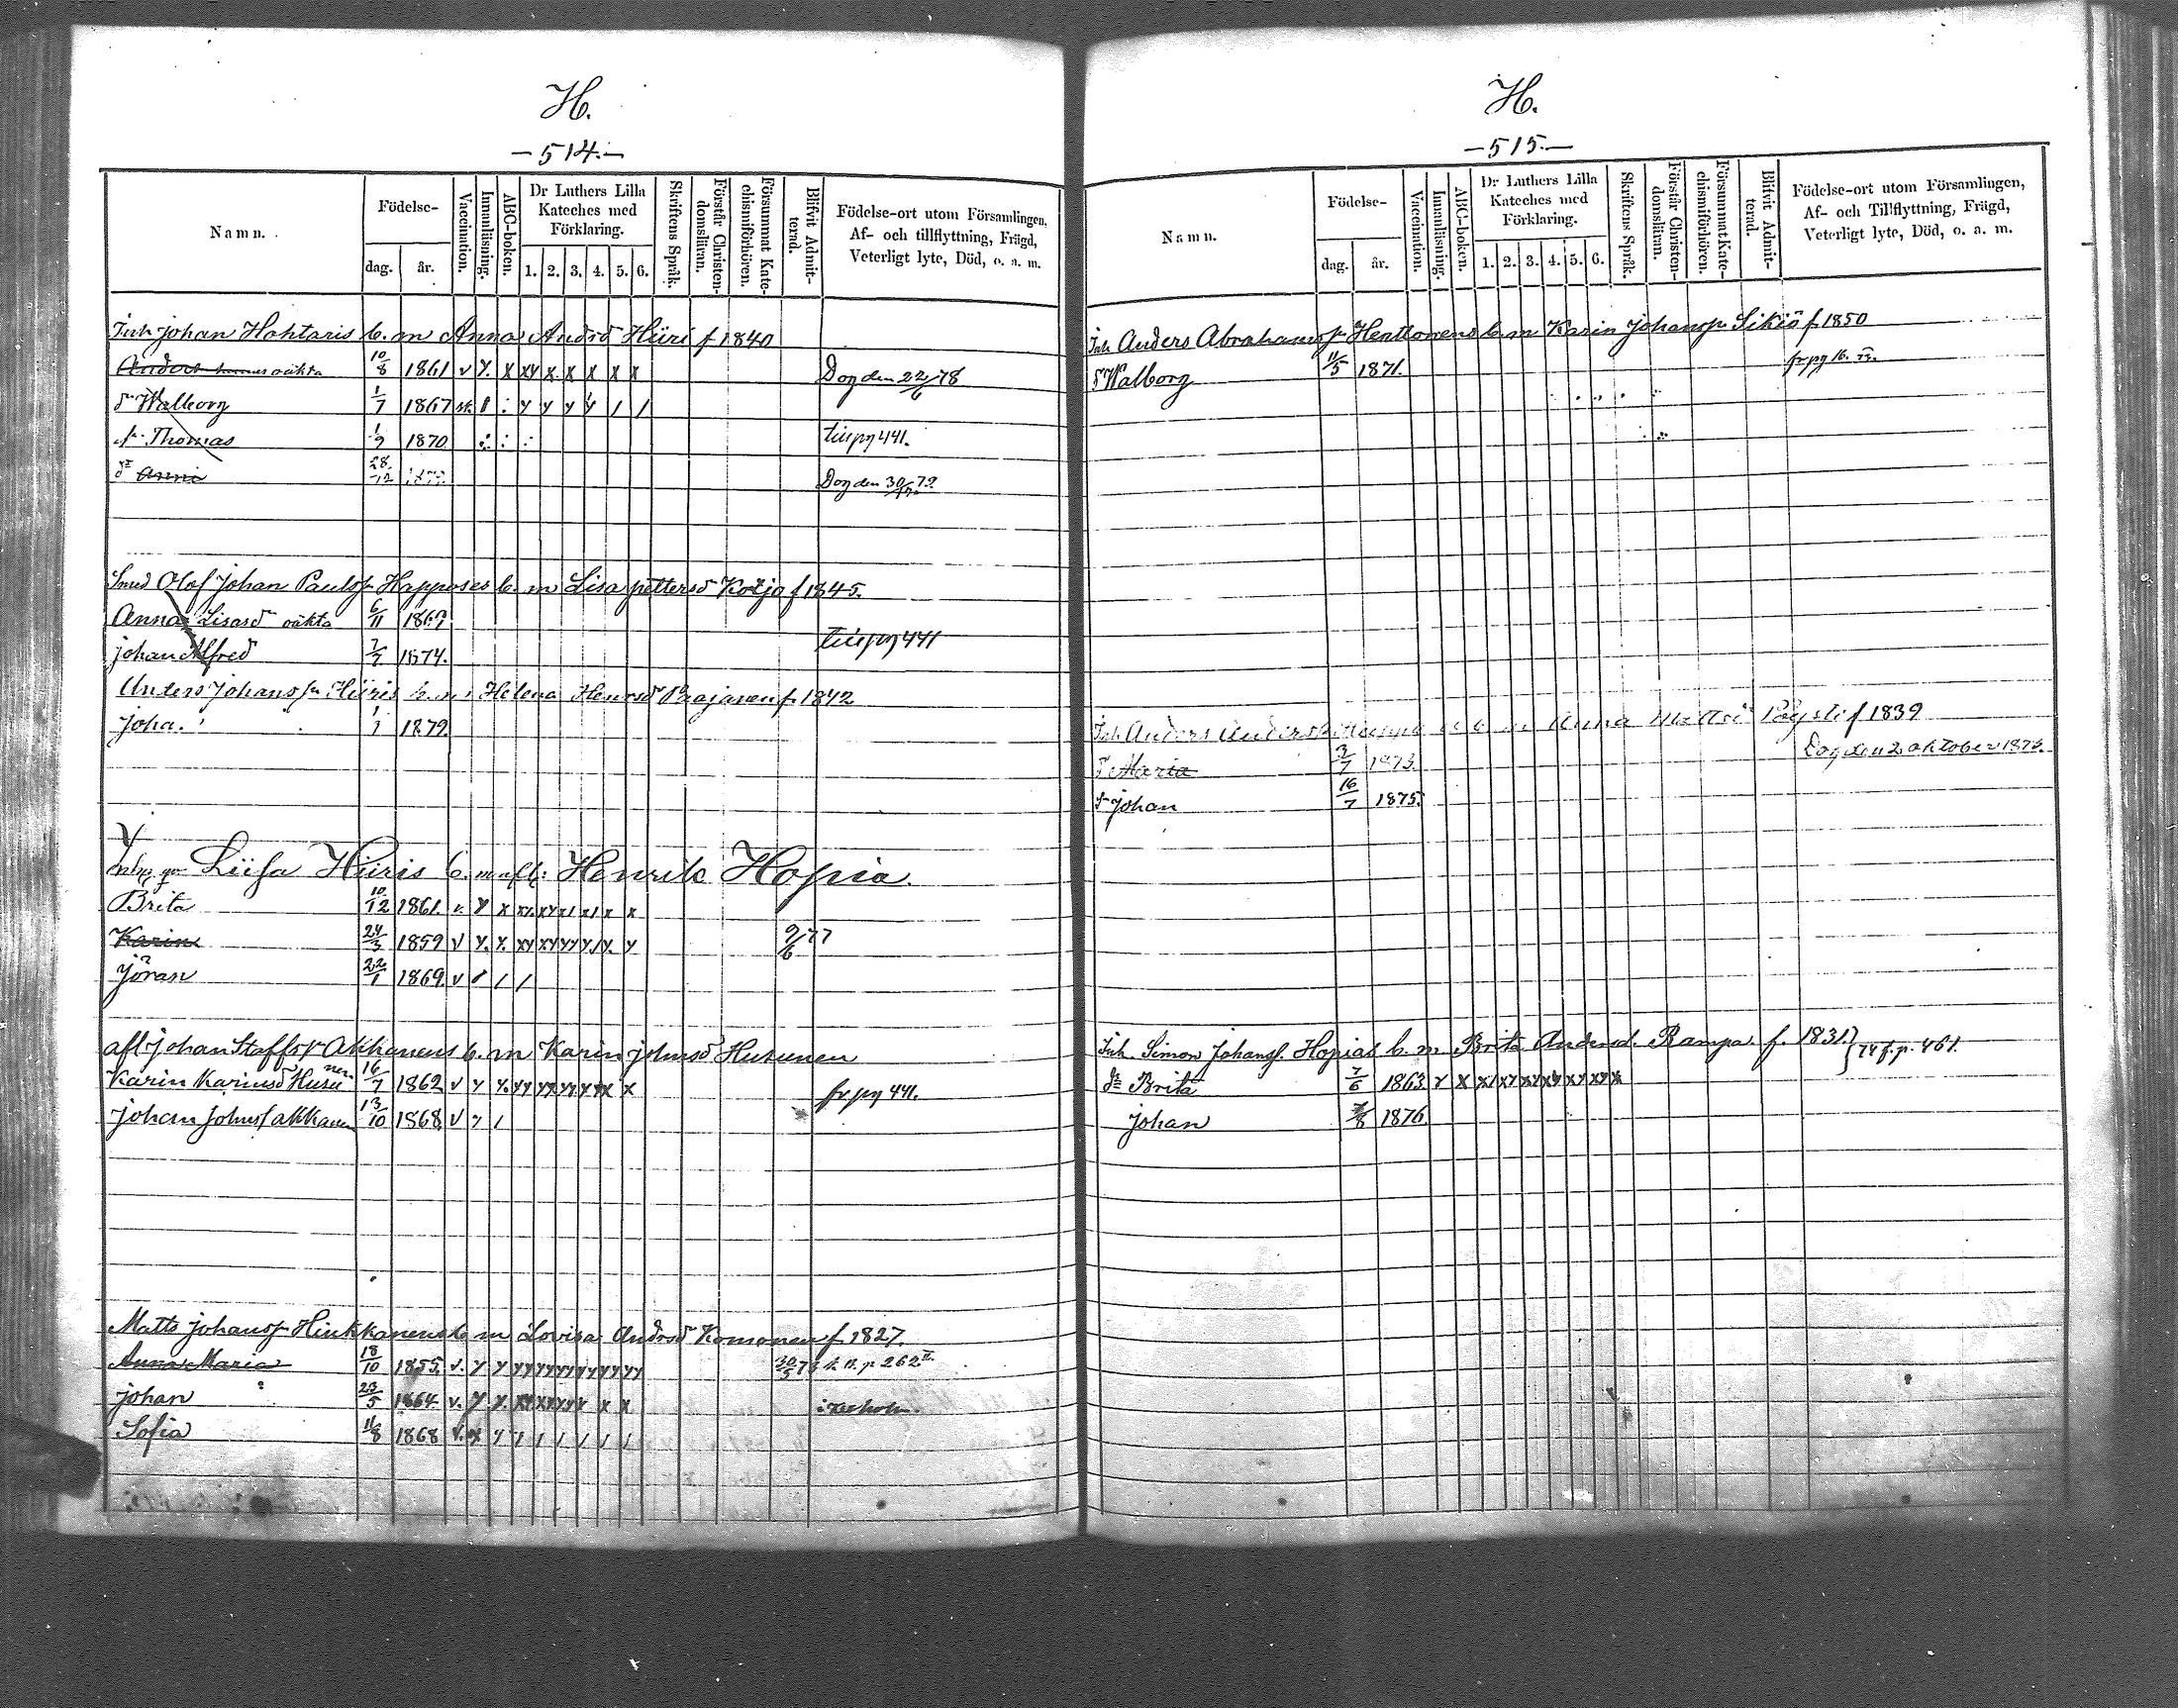 H.
-514.-
Namn.
Födelse-
dag.
år.
Vaccination.
Innanläsning.
ABC-boken.
Dr Luthers Lilla
Kateches med
Förklaring.
1. 2. 3. 4. 5. 6.
Skriftens Språk.
Förstår Christen-
domsläran.
Försummat Kate-
chismiförhören.
Blifvit Admit-
terad.
Födelse-ort utom Församlingen,
Af- och tillflyttning, Frägd,
Veterligt lyte, Död, o. a. m.
Inh Johan Hohtaris b. m Anna Andrsd Hüri f 1840
oäkta 10/8 1861 v y. x xy x x x x x Dog den 22/6 78
dr Walborg 1/7 1867 y y y y / /
Thomas 1/9 1870 till pg 441.
dr Anna 28/12 Dog den 30/ 79
Smed Olof Johan Paulss Happoses b. m Lisa Pettersd Kotja f 1845.
Anna Lisasd oäkta 6/11 1869
till pg 441
Johan Alfred 7/7 1874.
Anders Johanss Hüris b. m Helena Henrsd f. 1842
Joha. 1/1 1879
Lüsa Hüris b. m afl: Henrik Hopia.
Brita 10/12 1861. v. y x xy. xy x/ x/ x x
Karin 24/3 1859 v y. y. xy xy yy y./ y. y 9/6 77
Jöran 22/1 1869 v / / /
afl Johan Staffss Akkanens b. m Karin Johnsd Husunen
Karin Karinsd Husunen 16/7 1862 v y y. yy yy yy yx x x fr pg 441.
Johan Johnss Akkanen 13/10 1868 v y /
Matts Johanss Hinkkanens b m Lovisa Andrsd Komonen f. 1827.
Anna Maria 18/10 1855. v. y y yy yy yy yy yy yy 30/5 73 p 262 II.
Johan 23/5 1864 v. y y. xy xy yy y x x i
Sofia 11/8 1868 v. x y / / / / / /
H.
-515.-
Namn.
Födelse-
dag.
år.
Vaccination.
Innanläsning.
ABC-boken.
Dr Luthers Lilla
Kateches med
Förklaring.
1. 2. 3. 4. 5. 6.
Skriftens Språk.
Förstår Christen-
domsläran.
Försummat Kate-
chismiförhören.
Blifvit Admit-
terad.
Födelse-ort utom Församlingen,
Af- och Tillflyttning, Frägd,
Veterligt lyte, Död, o. a. m.
Inh Anders Abrahamss Henttonens b. m Karin Johanss Sikiö f. 1850
fr pg 16.
dr Walborg 11/5 1871.
Inh Anders Anderss b. m Anna Mattsd f 1839
Dog den 2 oktober 1873.
dr Maria 3/7 1873.
sr Johan 16/7 1875.
Inh. Simon Johanss. Hopias b. m. Brita Andersd. Rampa. f. 1831.
74 f. p. 461.
dr Brita 7/6 1863 y x x/ xy xy xy xy xy x
Johan 7/8 1876.